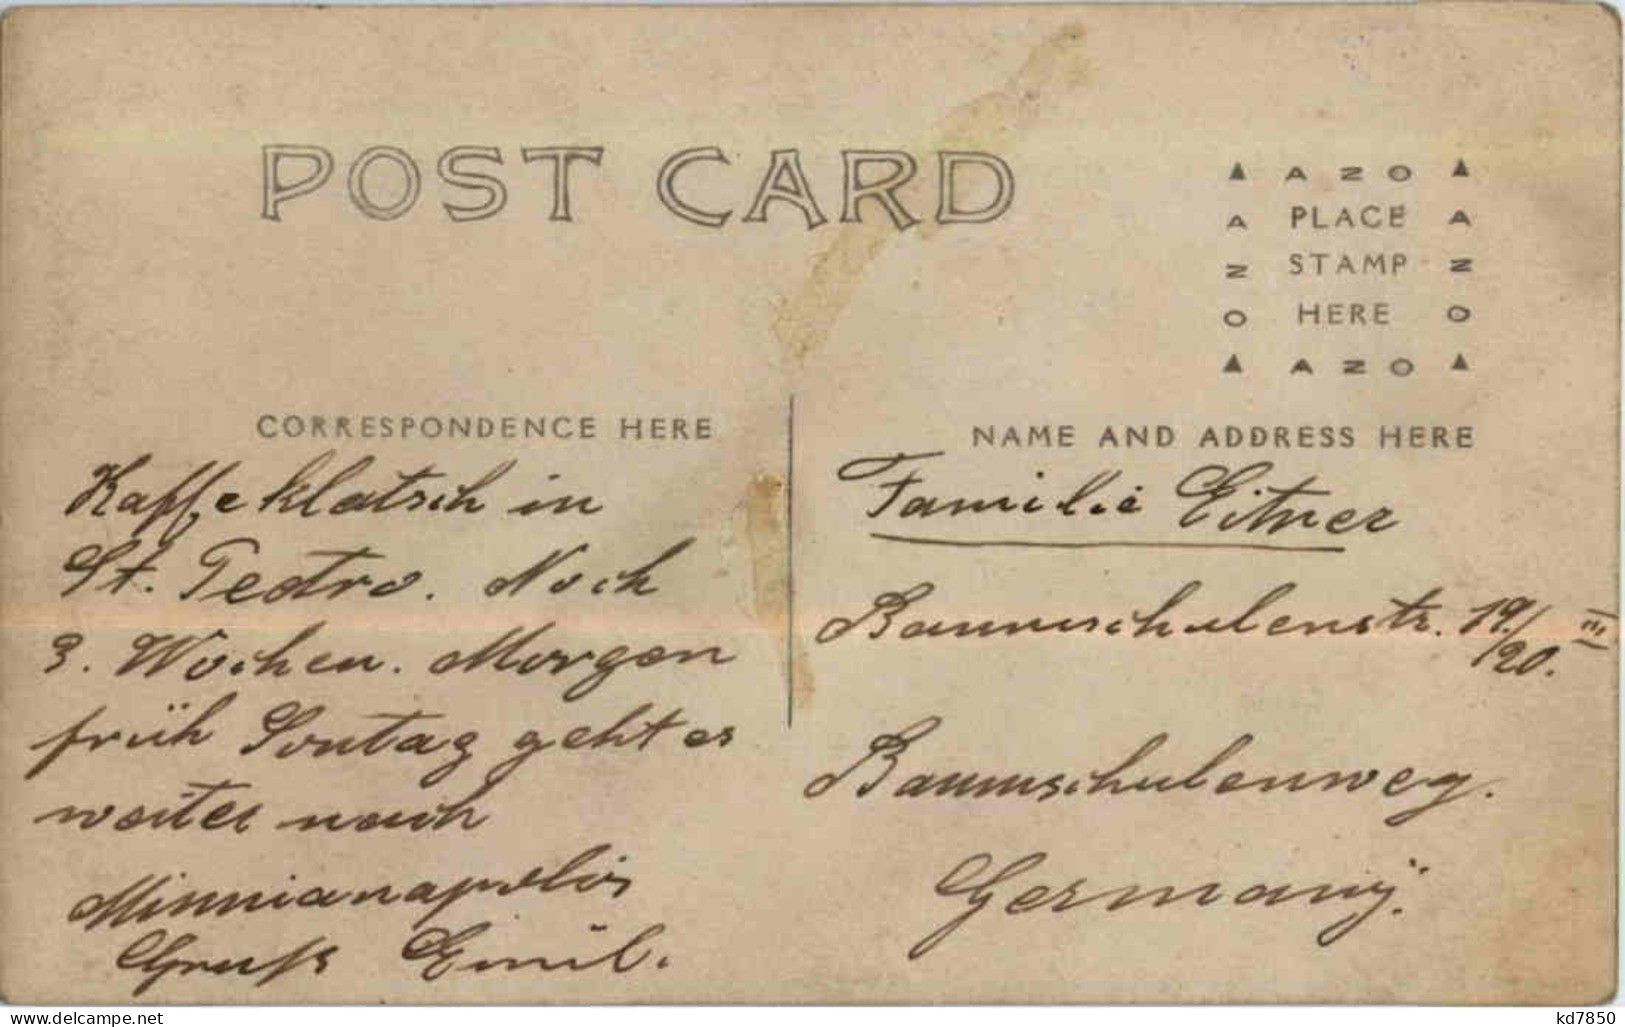 POST CARD
▲ AZO ▲
A PLACE A
N STAMP N
O HERE O
▲ AZO ▲
CORRESPONDENCE HERE
NAME AND ADDRESS HERE
Kaffeeklatsch in
St. Pedro. Noch
3. Wochen. Morgen
früh Sontag geht es
weiter nach
Minnianapolis
Gruß Emil.
Familie Eitner
Baumschulenstr. 19./20. III
Baumschulenweg.
Germany.
delcampe.net
kd7850